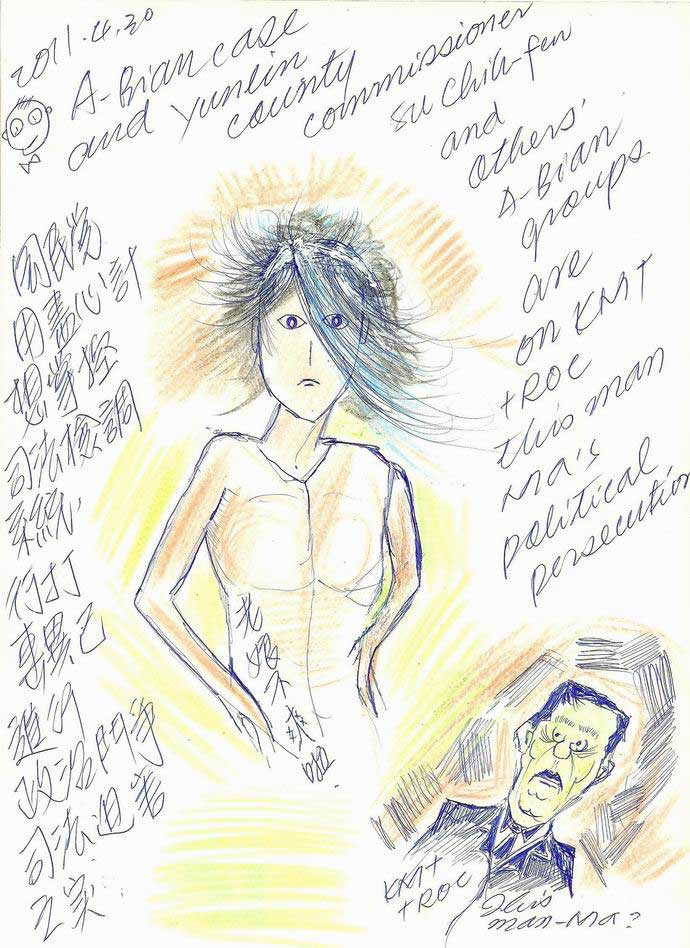 2011.4.20
A-Bian case
and Yunlin
county
commissioner
Su Chih-fen
and
others'
A-Bian
groups
are
on KMT
+ROC
this man
MA's
political
persecution
國民党
用盡心計
想掌控
司法檢調
系統,
行打
擊異己
進行
政治鬥爭
司法迫害
之實.
老娘不
KMT
+ROC
This
man-MA?